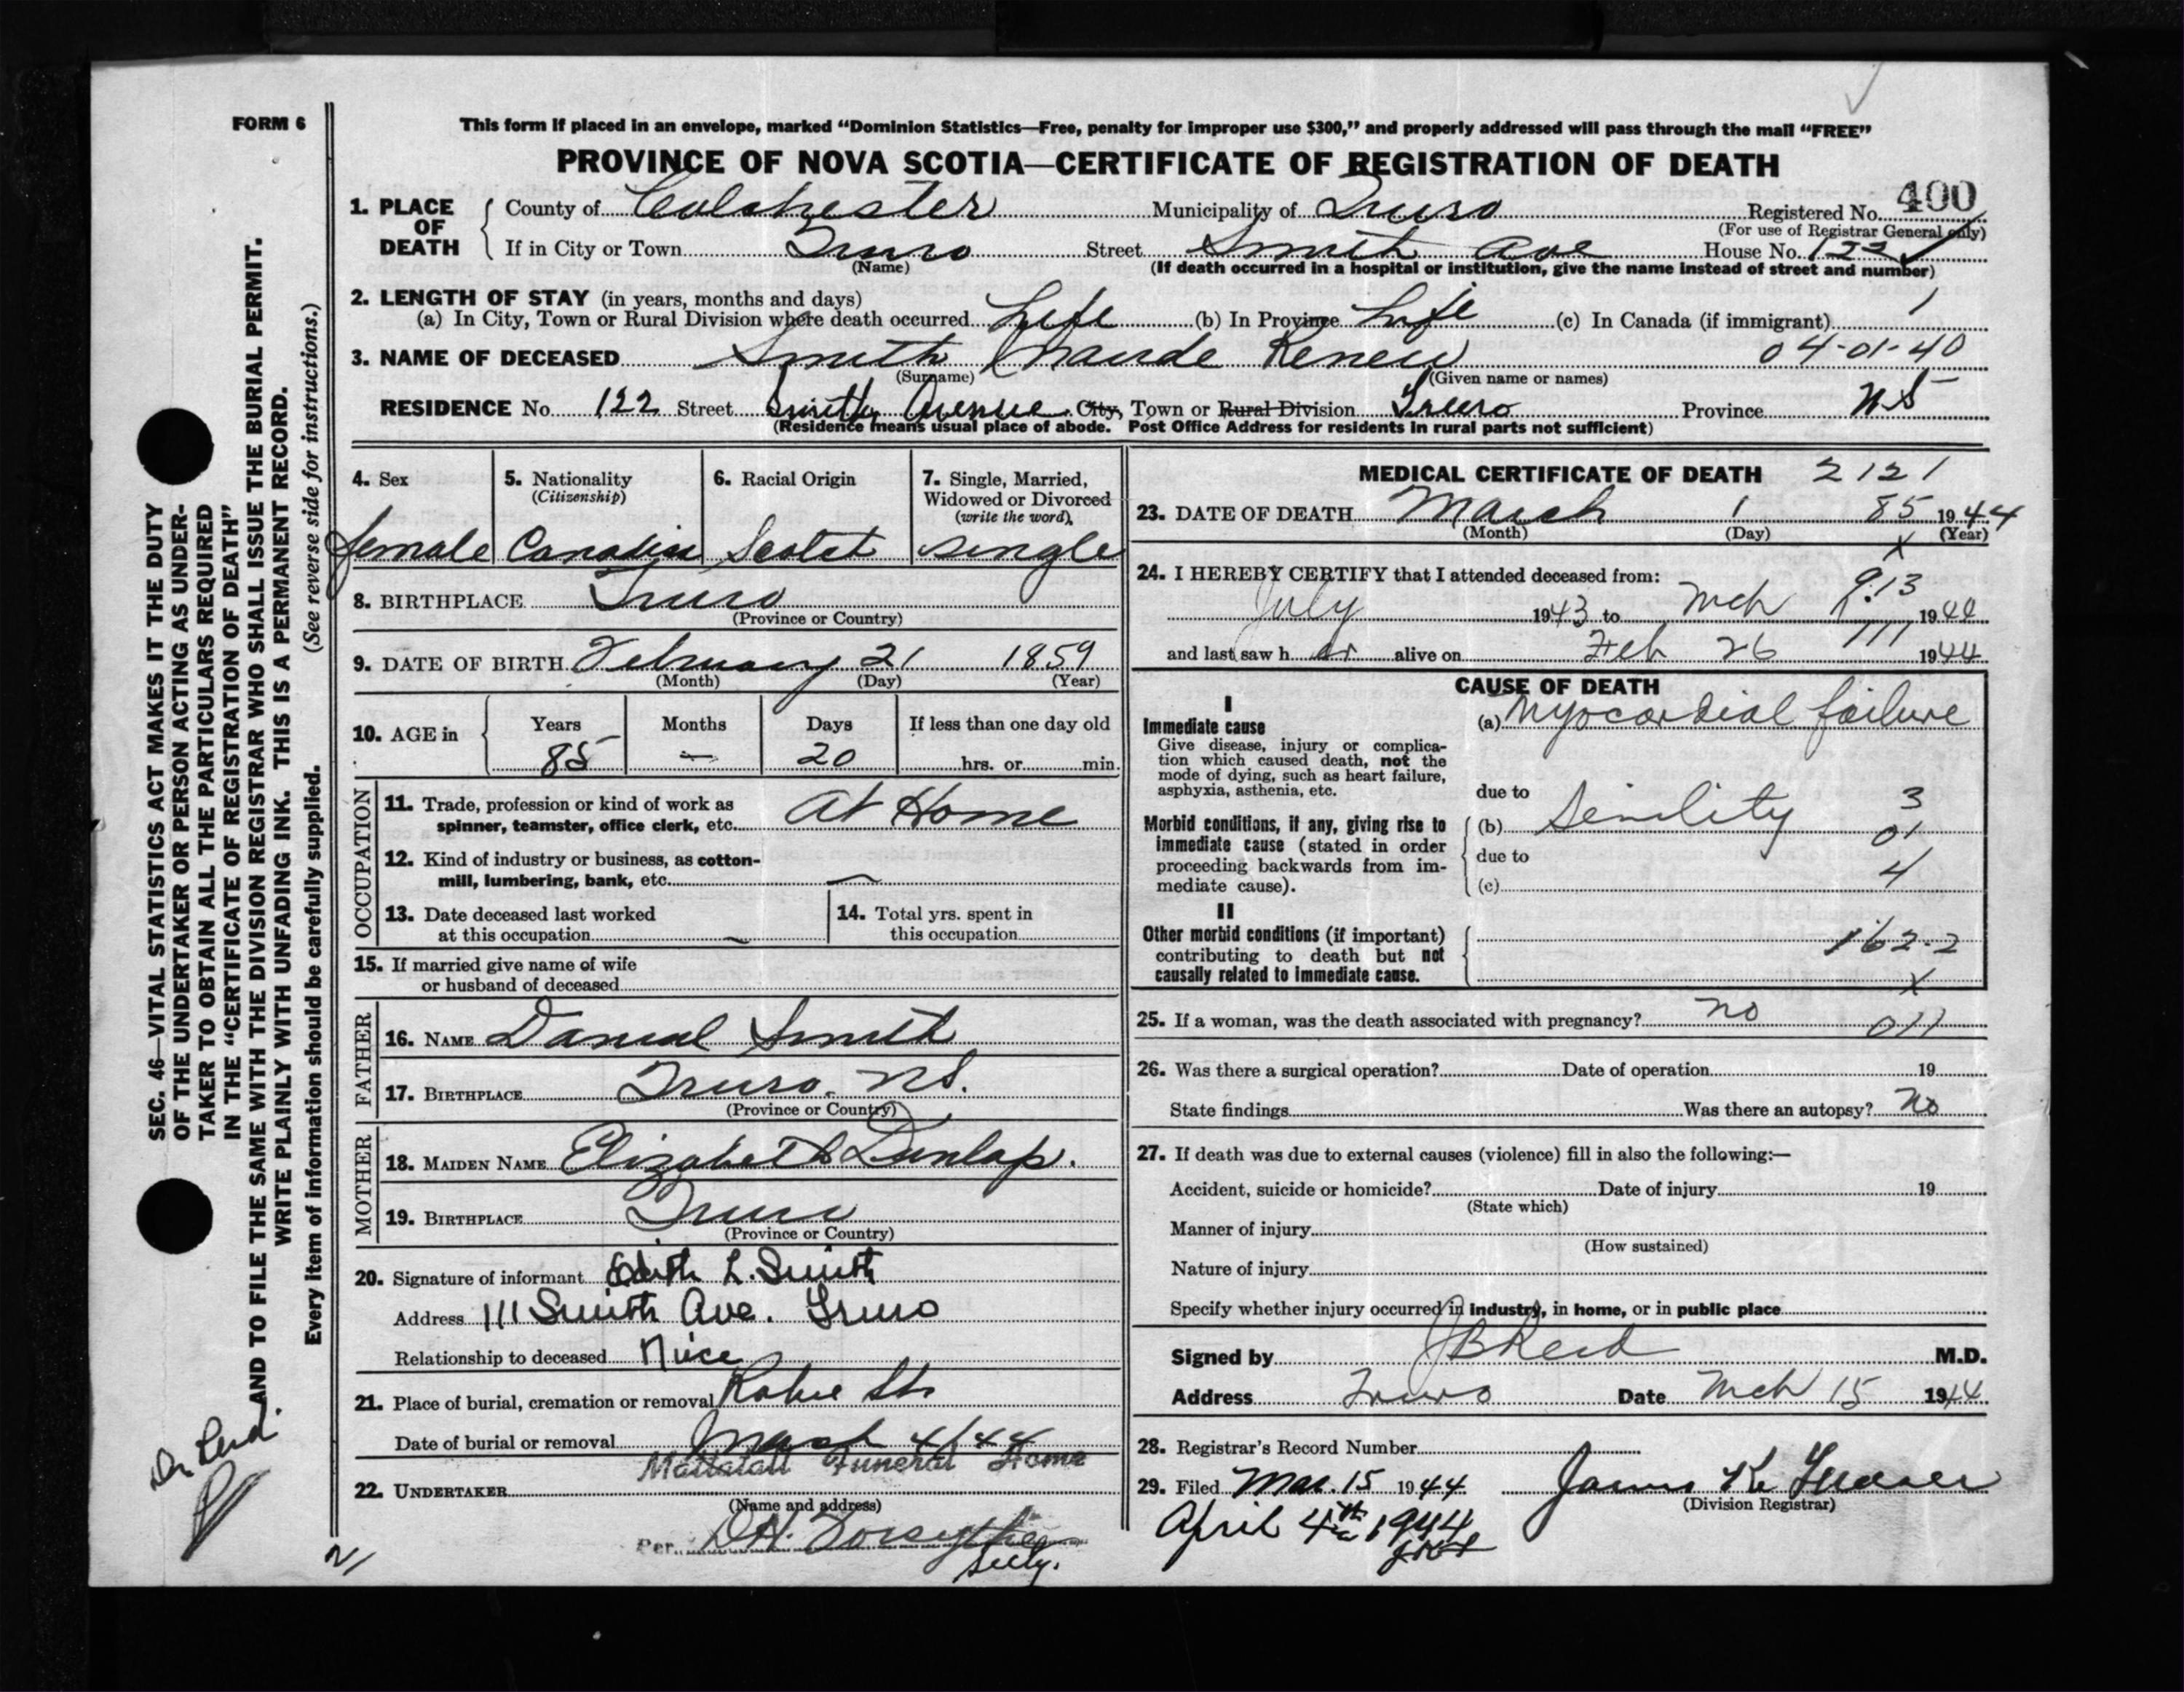 FORM 6
This form if placed in an envelope, marked “Dominion Statistics—Free, penalty for improper use $300,” and properly addressed will pass through the mail “FREE”
PROVINCE OF NOVA SCOTIA—CERTIFICATE OF REGISTRATION OF DEATH
400
1. PLACE OF DEATH County of Colchester Municipality of Truro Registered No.
(For use of Registrar General only)
If in City or Town Truro Street Smith Ave House No. 122
(Name)
(If death occurred in a hospital or institution, give the name instead of street and number)
2. LENGTH OF STAY (in years, months and days)
(a) In City, Town or Rural Division where death occurred Life (b) In Province Life (c) In Canada (if immigrant) 1
3. NAME OF DECEASED Smith Maude Renew 04-01-40
(Surname) (Given name or names)
RESIDENCE No. 122 Street Smith Avenue City, Town or Rural Division Truro Province NS
(Residence means usual place of abode. Post Office Address for residents in rural parts not sufficient)
4. Sex 5. Nationality 6. Racial Origin 7. Single, Married,
(Citizenship) Widowed or Divorced
(write the word)
female Canadian Scotch single
8. BIRTHPLACE Truro
(Province or Country)
9. DATE OF BIRTH February 21 1859
(Month) (Day) (Year)
10. AGE in Years Months Days If less than one day old
85 — 20 hrs. or min.
OCCUPATION
11. Trade, profession or kind of work as
spinner, teamster, office clerk, etc. At Home
12. Kind of industry or business, as cotton-
mill, lumbering, bank, etc. —
13. Date deceased last worked
at this occupation —
14. Total yrs. spent in
this occupation
15. If married give name of wife
or husband of deceased
FATHER
16. NAME Danial Smith
17. BIRTHPLACE Truro. NS.
(Province or Country)
MOTHER
18. MAIDEN NAME Elizabeth Dunlap.
19. BIRTHPLACE Truro
(Province or Country)
20. Signature of informant Edith L. Smith
Address 111 Smith Ave. Truro
Relationship to deceased Niece
21. Place of burial, cremation or removal Robie St.
Date of burial or removal March 4/44
Mattatall Funeral Home
22. UNDERTAKER
(Name and address)
Per. D.H. Forsythe
MEDICAL CERTIFICATE OF DEATH 2121
23. DATE OF DEATH March 1 85 1944
(Month) (Day) (Year)
x
24. I HEREBY CERTIFY that I attended deceased from: 913
July 1943 to Mch 1944
111
and last saw h er alive on Feb 26 1944
CAUSE OF DEATH
I
Immediate cause
Give disease, injury or complica-
tion which caused death, not the
mode of dying, such as heart failure,
asphyxia, asthenia, etc.
(a) Myocardial failure
due to
Morbid conditions, if any, giving rise to
immediate cause (stated in order
proceeding backwards from im-
mediate cause).
(b) Senility 3
01
due to
4
(c)
II
Other morbid conditions (if important)
contributing to death but not
causally related to immediate cause.
162-2
x
25. If a woman, was the death associated with pregnancy? no 011
26. Was there a surgical operation? Date of operation 19
State findings Was there an autopsy? No
27. If death was due to external causes (violence) fill in also the following:—
Accident, suicide or homicide? Date of injury 19
(State which)
Manner of injury
(How sustained)
Nature of injury
Specify whether injury occurred in industry, in home, or in public place
Signed by J B Reid M.D.
Address Truro Date Mch 15 1944
28. Registrar's Record Number
29. Filed Mar. 15 1944 James K
(Division Registrar)
April 4th 1944
SEC. 46—VITAL STATISTICS ACT MAKES IT THE DUTY
OF THE UNDERTAKER OR PERSON ACTING AS UNDER-
TAKER TO OBTAIN ALL THE PARTICULARS REQUIRED
IN THE “CERTIFICATE OF REGISTRATION OF DEATH”
AND TO FILE THE SAME WITH THE DIVISION REGISTRAR WHO SHALL ISSUE THE BURIAL PERMIT.
WRITE PLAINLY WITH UNFADING INK. THIS IS A PERMANENT RECORD.
Every item of information should be carefully supplied. (See reverse side for instructions.)
Dr Reid